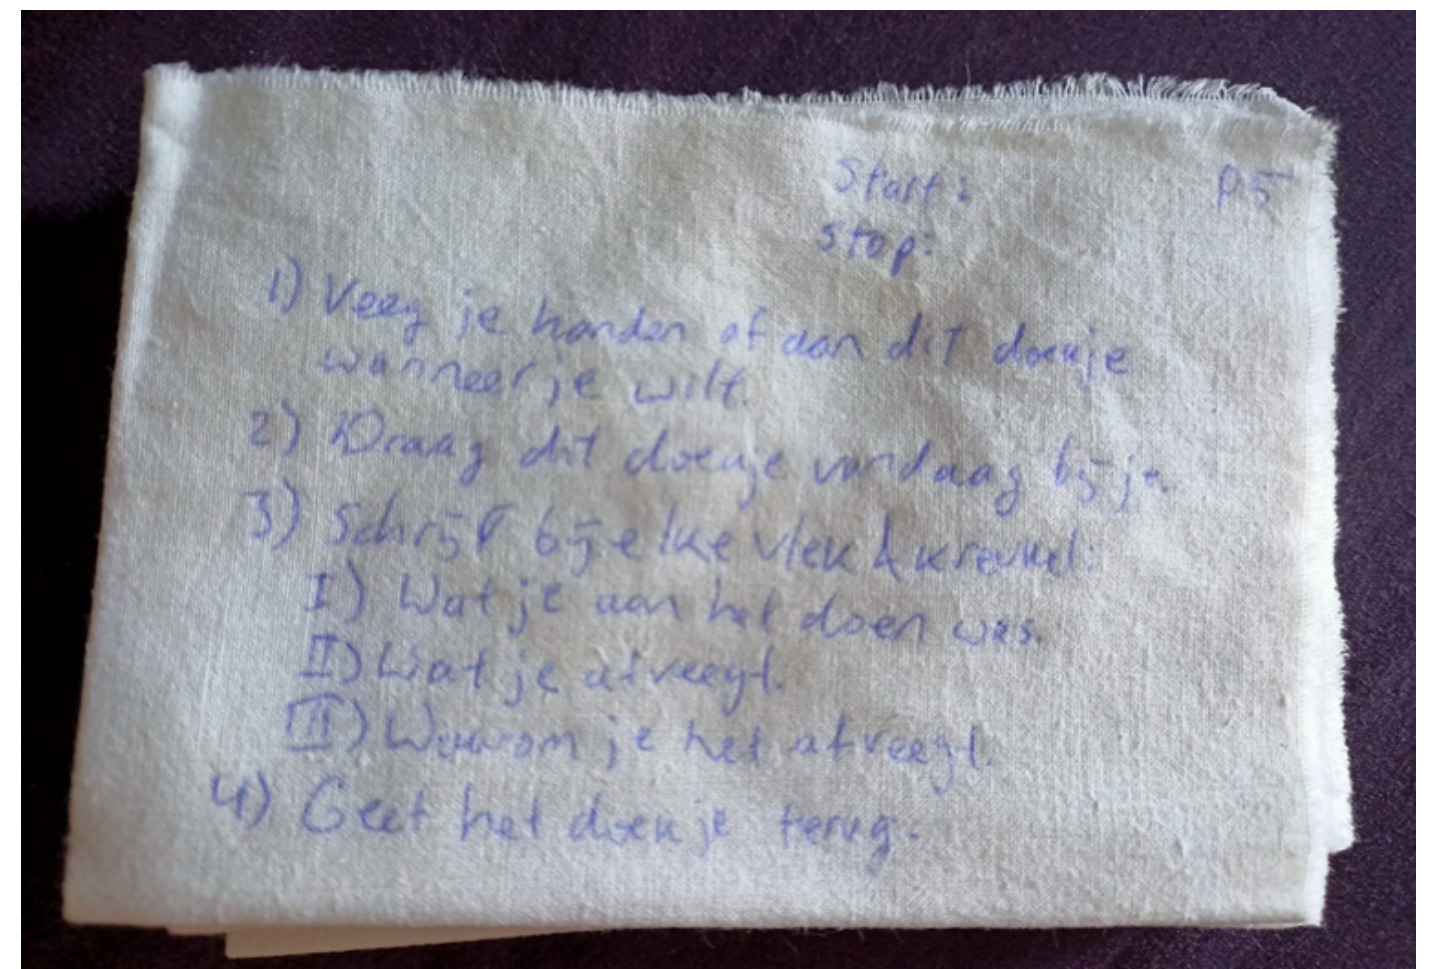 Start: P5
Stop:
1) Veeg je handen af aan dit doekje
wanneer je wilt.
2) Draag dit doekje vandaag bij je.
3) Schrijf bij elke vlek & kreukel:
I) Wat je aan het doen was.
II) Wat je afveegt.
III) Waarom je het afveegt.
4) Geef het doekje terug.